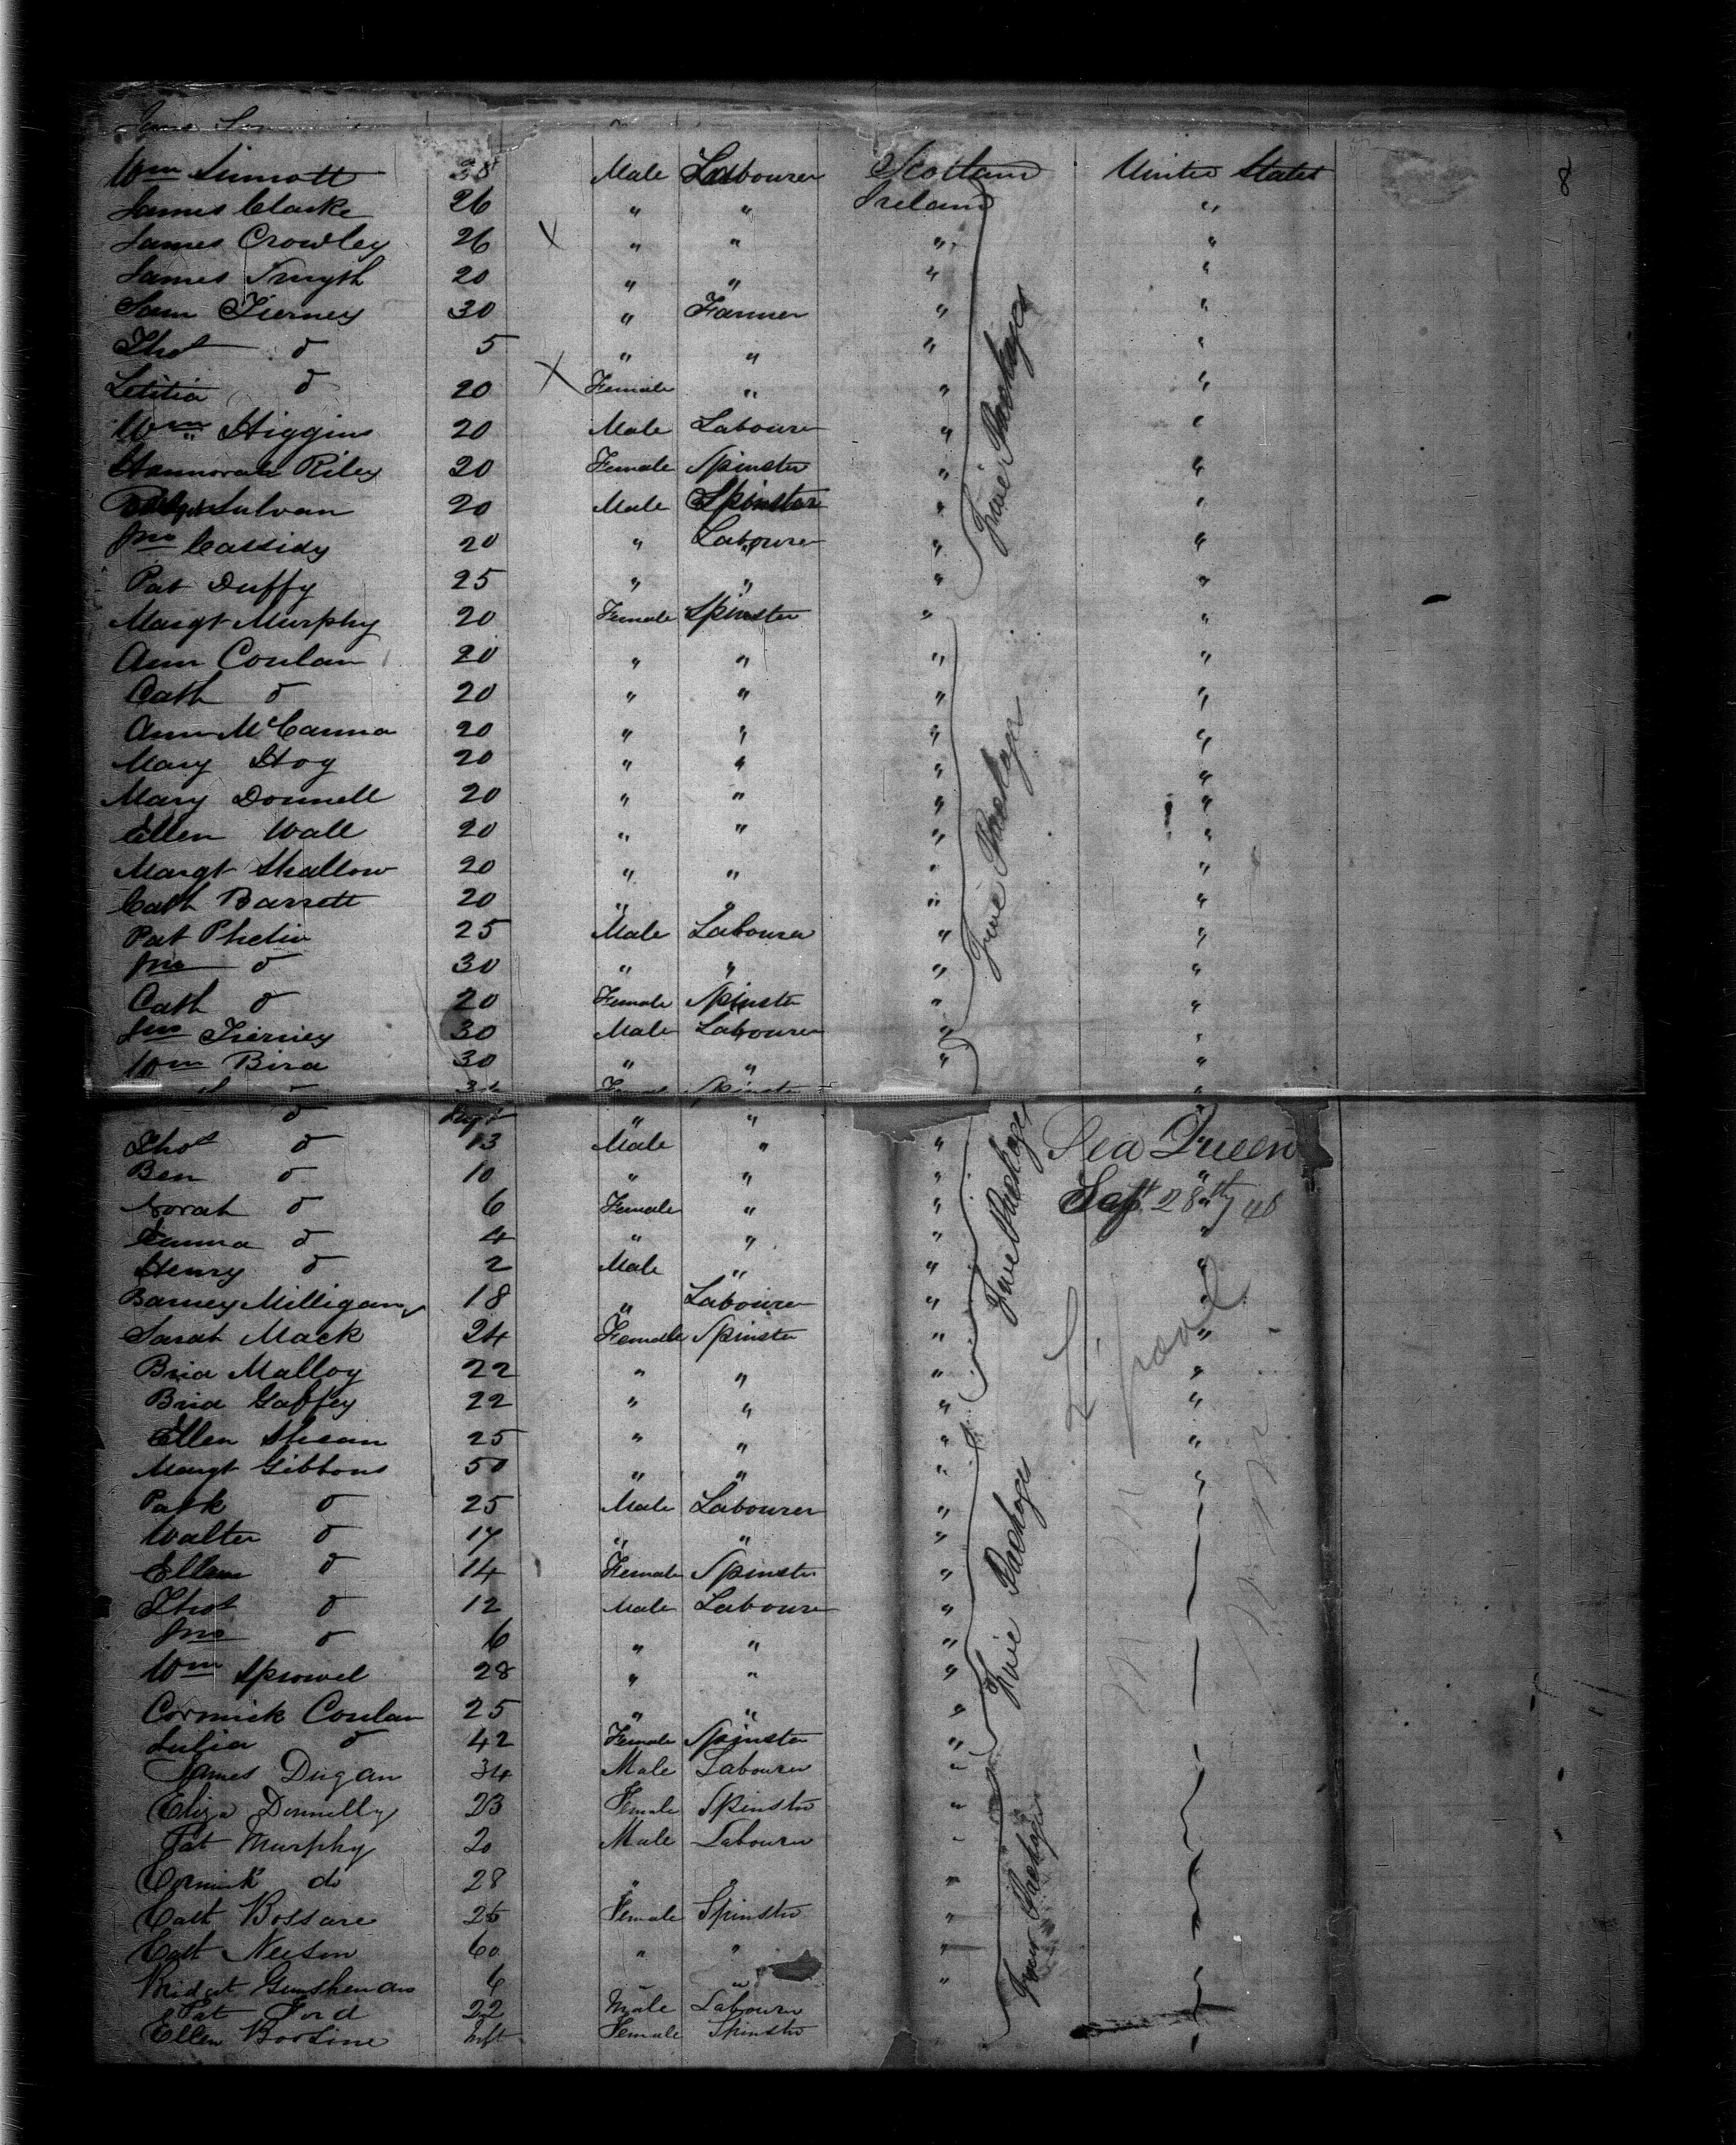 Wm Sinnott 38 Male Labourer Scotland United States
James Clarke 26 " " Ireland "
James Crowley 26 X " " " "
James Smyth 20 " " " "
Sam Tierney 30 " Farmer " "
Thos do 5 " " " "
Letitia do 20 X Female " " "
Wm Higgins 20 Male Labourer " "
Hannorah Riley 20 Female Spinster " "
Sulvan 20 Male Spinster " "
Jno Cassidy 20 " Labourer " "
Pat Duffy 25 " " " "
Margt Murphy 20 Female Spinster " "
Ann Conlan 20 " " " "
Cath do 20 " " " "
Ann McCanna 20 " " " "
Mary Hoy 20 " " " "
Mary Donnell 20 " " " "
Ellen Wall 20 " " " "
Margt Shallow 20 " " " "
Cath Barrett 20 " " " "
Pat Phelin 25 Male Labourer " "
Jno do 30 " " " "
Cath do 20 Female Spinster " "
Jno Tierney 30 Male Labourer " "
Wm Bird 30 " " " "
do Female Spinster "
do Inft " "
Thos do 13 Male " " Sea Queen
Ben do 10 " " " "
Norah do 6 Female " " Sept 28th / 48
Emma do 4 " " " "
Henry do 2 Male " " "
Barney Milligan 18 " Labourer " "
Sarah Mack 24 Female Spinster " "
Brid Malloy 22 " " " "
Brid Gaffey 22 " " " "
Ellen Shean 25 " " " "
Margt Gibbons 50 " " " "
Patk do 25 Male Labourer "
Walter do 17 " " "
Ellen do 14 Female Spinster "
Thos do 12 Male Labourer "
Jno do 6 " " "
Wm Sprowel 28 " " "
Cormick Conlan 25 " " "
Julia do 42 Female Spinster "
James Dugan 34 Male Labourer "
Eliza Donnelly 23 Female Spinster "
Pat Murphy 20 Male Labourer "
Cormick do 28 " " "
Cath 25 Female Spinster "
Cath 60 " " "
Bridget 6 " "
Pat Ford 22 Male Labourer
Ellen Inft Female Spinster
L'pool
8